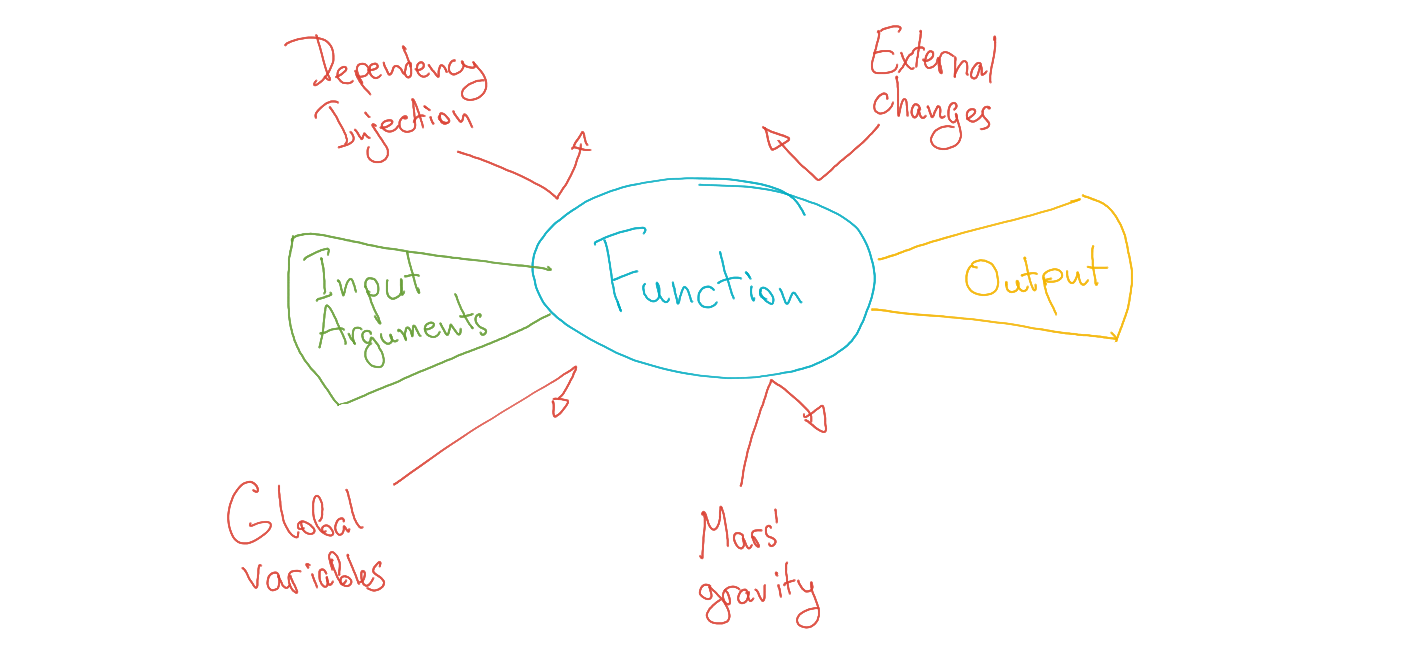 Dependency
Injection
External
changes
Input
Arguments
Function
Output
Global
variables
Mars'
gravity